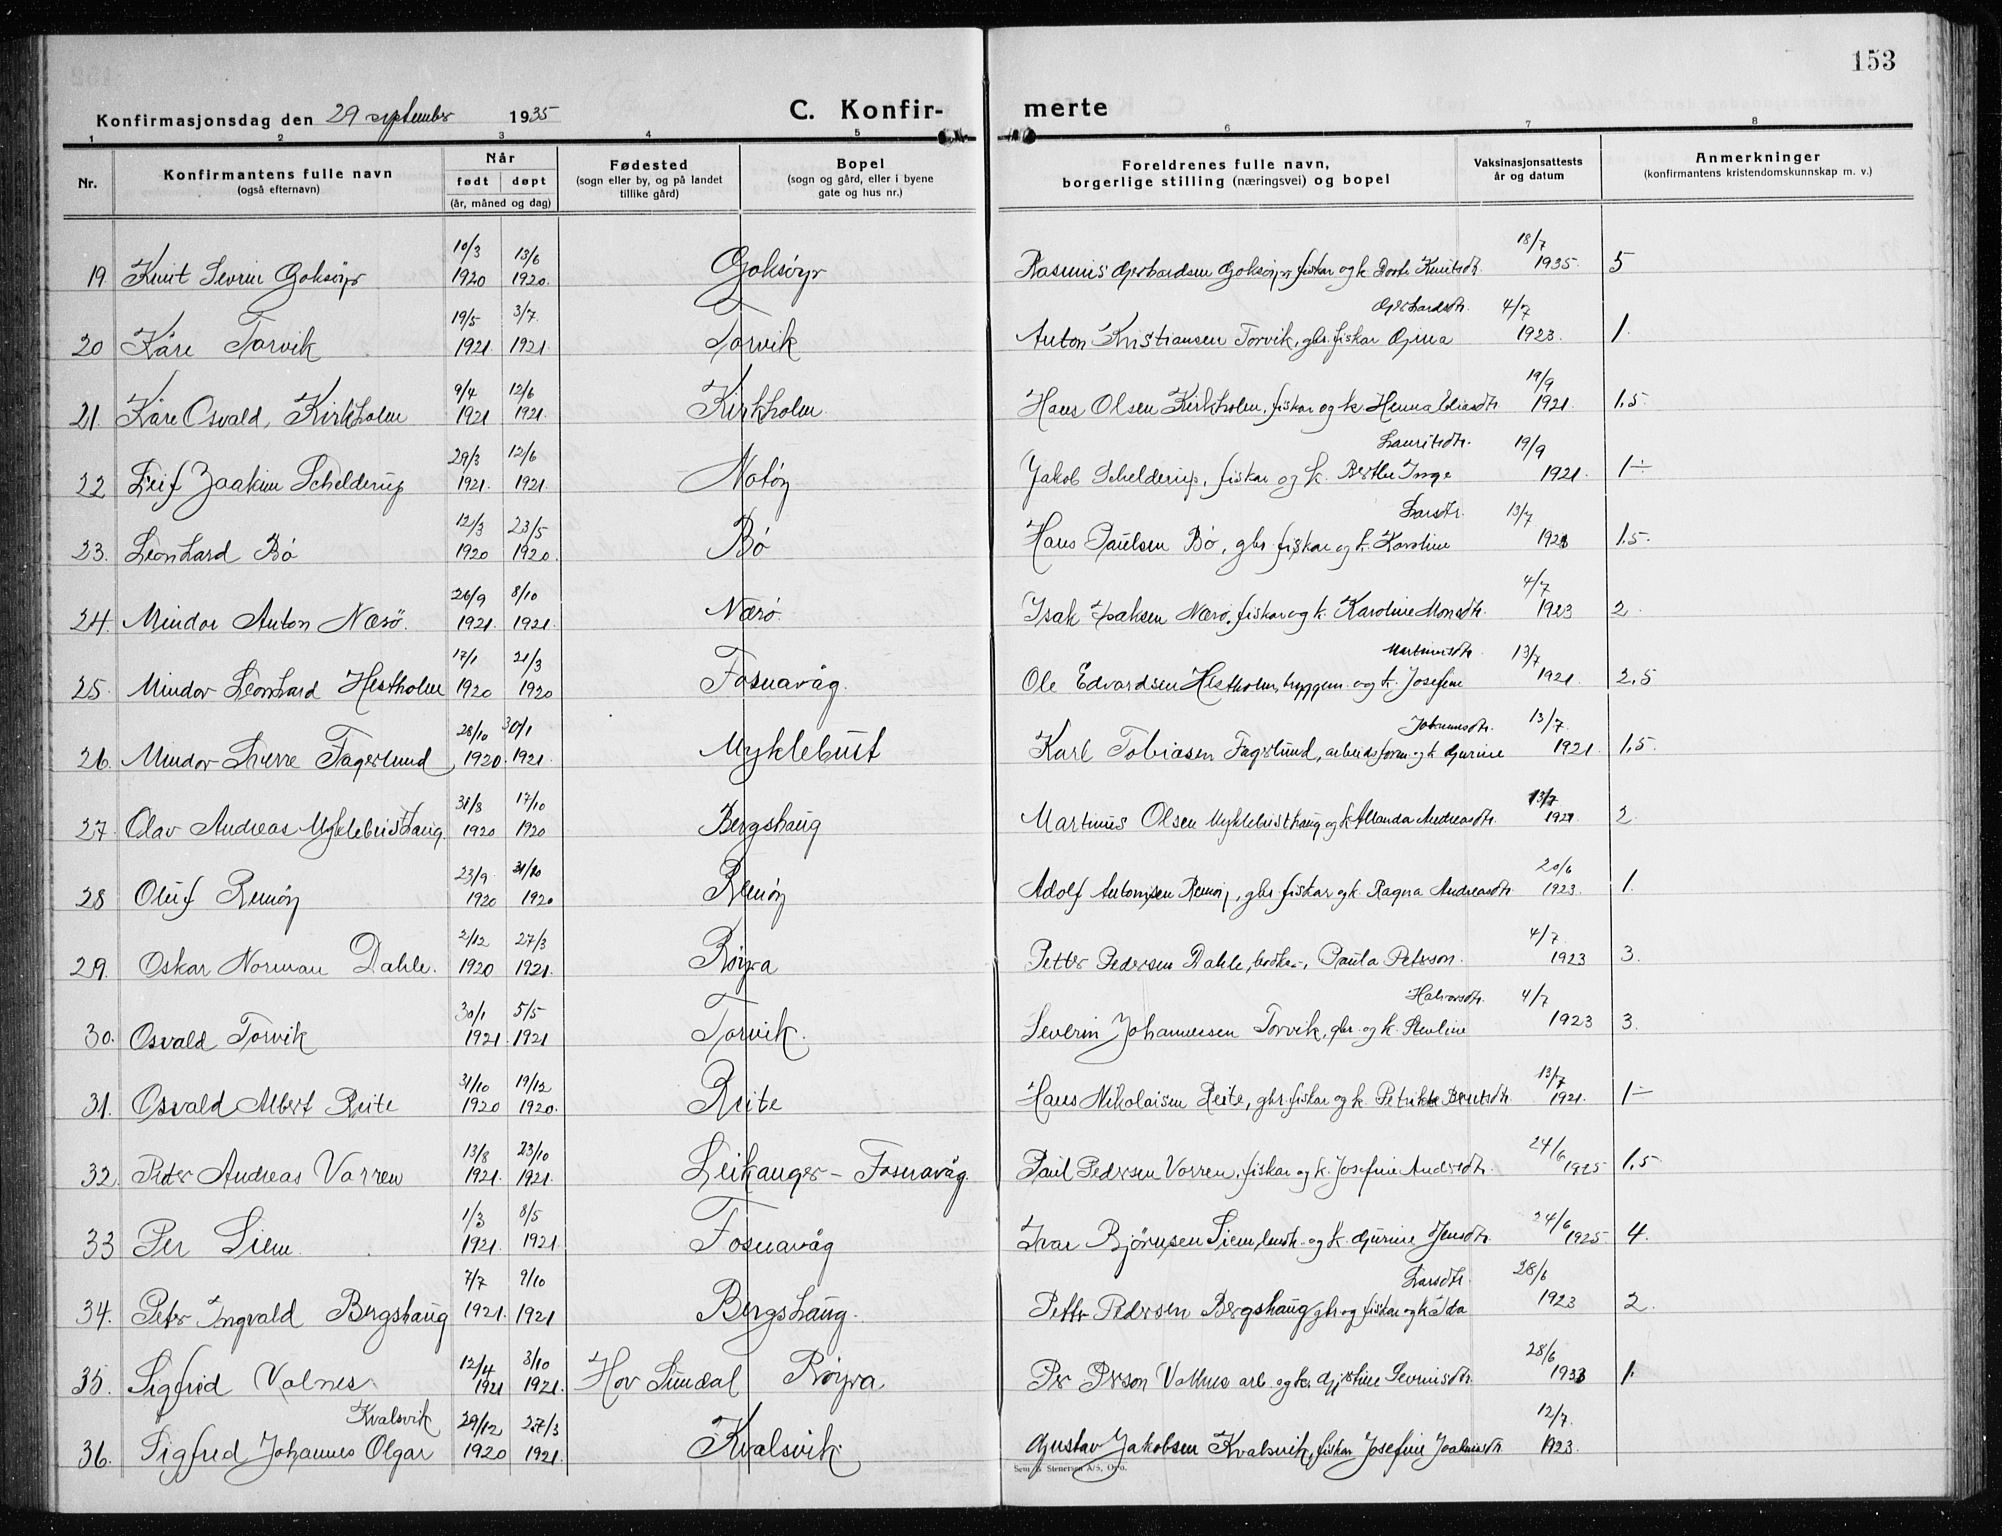 153
Konfirmasjonsdag den 29 september 1935 C. Konfir- merte
1 2 3 4 5 6 7 8
Nr. Konfirmantens fulle navn (også efternavn) Når født døpt (år, måned og dag) Fødested (sogn eller by, og på landet tillike gård) Bopel (sogn og gård, eller i byene gate og hus nr.) Foreldrenes fulle navn, borgerlige stilling (næringsvei) og bopel Vaksinasjonsattests år og datum Anmerkninger (konfirmantens kristendomskunnskap m. v.)
10/3 13/6 18/7
19. Knut Severin Goksöyr 1920 1920. Goksöyr Rasmus Gerhardsen Goksöyr, fiskar og k. Knutsdtr. 1935. 5
19/5 3/7. Gerhardsdtr. 4/7
20 Kåre Torvik 1921 1921 Torvik Anton Kristiansen Torvik, gbr. fiskar Gina 1923. 1.
9/4 12/6 19/9
21. Kåre Osvald, Kirkholm 1921 1921. Kirkholm Hans Olsen Kirkholm, fiskar og k. Eliasdtr. 1921. 1,5.
29/3 12/6 Lauritsdtr. 19/9
22 Leif Joakim Schelderup 1921. 1921. Notöy Jakob Schelderup, fiskar og k. Berthe Inge 1921. 1÷
12/3 23/5 Larsdtr. 13/7
23. Leonhard Bö 1920 1920. Bö Hans Paulsen Bö, gbr. fiskar og k. Karoline 1.5.
26/9 8/10 4/7
24. Mindor Anton Nærö. 1921. 1921. Nærö. Isak Isaksen Nærö, fiskar og k. Karoline Monsdtr. 1923 2.
17/1 21/3 Martinusdtr. 13/7
25. Mindor Leonhard Hestholm 1920 1920 Fosnavåg. Ole Edvardsen Hestholm, og k. Josefine 1921. 2,5
28/10 30/1 Johannesdtr. 13/7
26. Mindor Sverre Fagerlund 1920. 1921. Myklebust Karl Tobiasen Fagerlund, arbeidsform. og k. Gurine 1921. 1,5.
31/8 17/10 13/7
27. Olav Andreas Myklebusthaug. 1920 1920 Bergshaug Martinus Olsen Myklebusthaug og k. Amanda Andreasdtr. 1921 2.
23/9. 31/10 20/6
28 Oluf Remöy 1920 1920 Remöy Adolf Antonsen Remöy, gbr. fiskar og k. Ragna Andreasdtr. 1923. 1.
2/12 27/3 4/7
29. Oskar Norman Dahle. 1920 1921. Röyra Petter Pedersen Dahle, Paula Peterson. 1923 3.
30/1 5/5 Halvorsdtr. 4/7
30. Osvald Torvik 1921. 1921 Torvik. Severin Johannessen Torvik, gbr. og k. Pauline 1923 3.
31/10 19/12 13/7
31. Osvald Albert Reite 1920 1920. Reite Hans Nikolaisen Reite, gbr. fiskar og k. Petrikke Berntsdtr. 1921. 1-
13/8 23/10 24/6
32. Peder Andreas Vorren 1921. 1921. Leikanger - Fosnavåg. Paul Pedersen Vorren, fiskar og k. Josefine Andrsdtr. 1925 1,5
1/3 8/5 24/6
33 Per Siem. 1921. 1921 Fosnavåg Ivar Björnsen Siem, og k. Gurine Jensdtr. 1925 4.
7/7 9/10 Larsdtr. 28/6
34. Peter Ingvald Bergshaug 1921. 1921 Bergshaug. Petter Pedersen Bergshaug gbr. og fiskar og k. Ida 1923 2.
12/4 3/10 28/6
35. Sigfred Valnes. 1921 1921. Hov Sundal Röyra Per Person Valnes arb. og k. Severinsdtr. 1923 1.
Kvalsvik 29/12 27/3 12/7.
36. Sigfred Johannes Olgar 1920 1921. Kvalsvik. Gustav Jakobsen Kvalsvik, fiskar Josefine Joakimsdtr. 1923.
Sem & Stenersen A/S, Oslo.